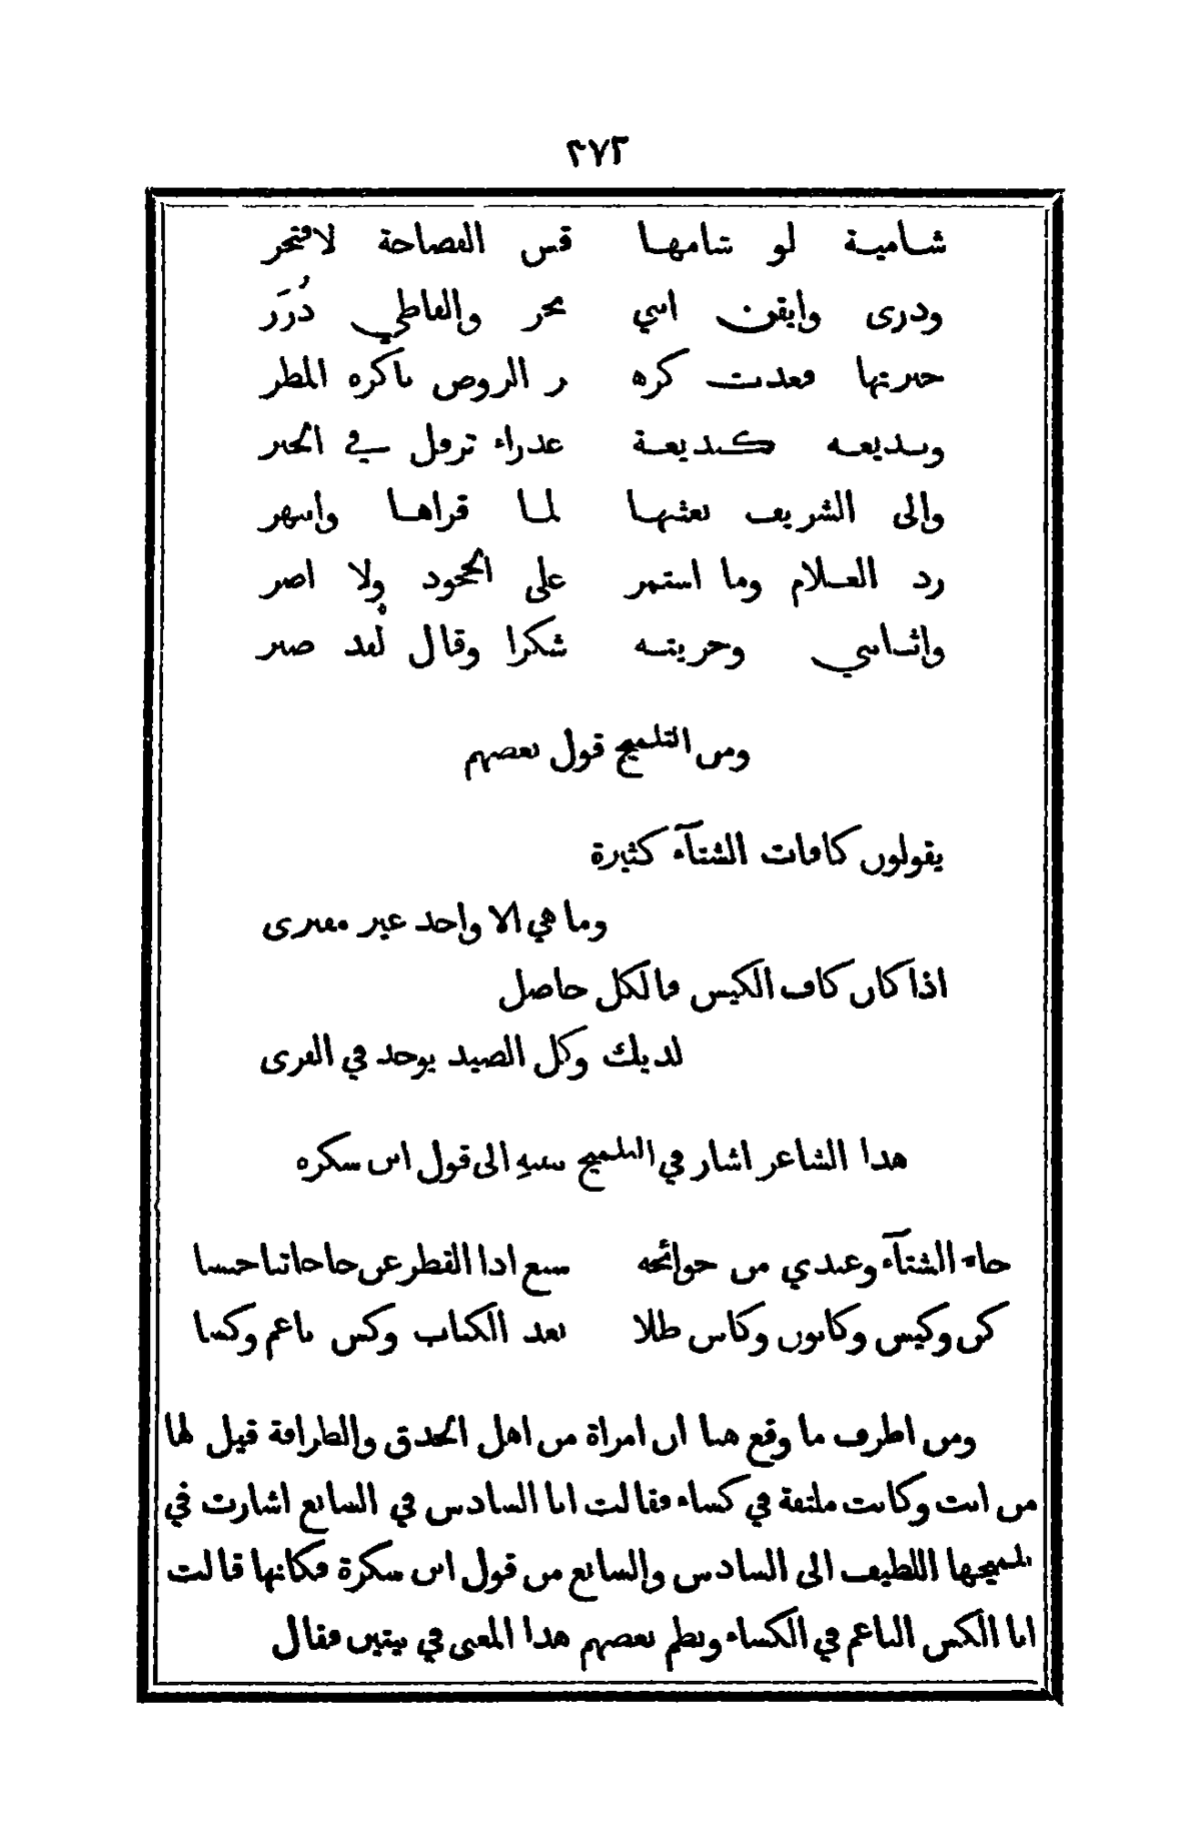 ٢٧٣
شامية لو شامها قس الفصاحة لافتخر
ودرى وايقن انني بحر والفاظي دُرَر
حبرتها فغدت كزه ر الروض باكره المطر
وبديعه كبديعة عذراء ترفل في الحبر
والى الشريف بعثتها لما قراها وابتهر
رد الغلام وما استمر على الجحود ولا اصر
واثابني وجزيته شكرا وقال لقد صبر
ومن التلميح قول بعضهم
يقولون كافات الشتآء كثيرة
وما هي الا واحد غير مفترى
اذا كان كاف الكيس فالكل حاصل
لديك وكل الصيد يوجد في الفرى
هذا الشاعر اشار في التلميح ببيتيه الى قول ابن سكره
جاء الشتآء وعندي من حوائجه سبع اذا القطر عن حاجاتنا حبسا
كن وكيس وكانون وكاس طلا بعد الكباب وكس ناعم وكسا
ومن اظرف ما وقع هنا ان امراة من اهل الحذق والظرافة قيل لها
من انت وكانت ملتفة في كساء فقالت انا السادس في السابع اشارت في
تلميحها اللطيف الى السادس والسابع من قول ابن سكرة فكانها قالت
انا الكس الناعم في الكساء ونظم بعضهم هذا المعنى في بيتين فقال